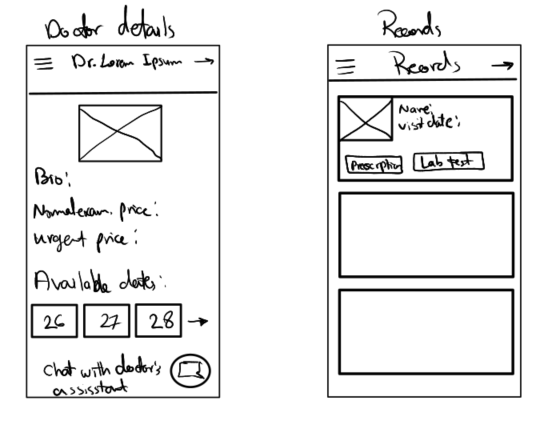 Doctor details
Dr. Loram Ipsum
Bio:
Normal exam. price:
urgent price:
Available dates:
26 27 28
Chat with doctor's
assisstant
Records
Records
Name:
visit date:
Prescription Lab test